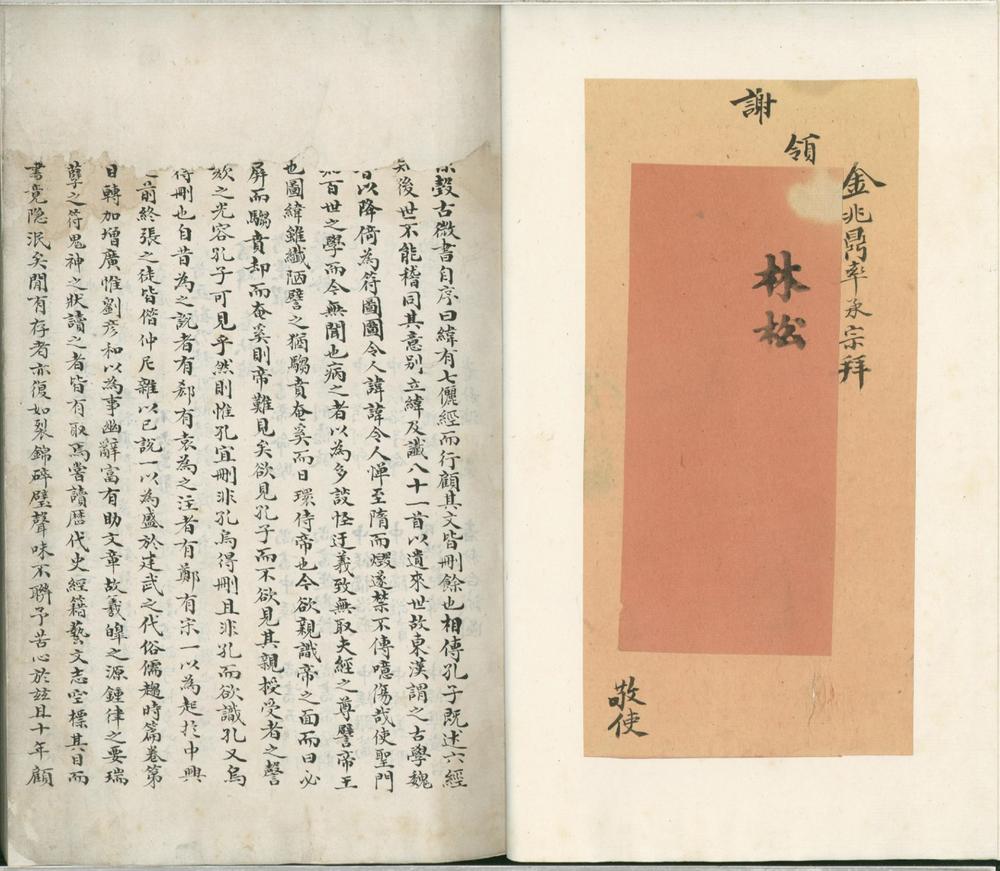 金兆鼎率承宗拜
領
謝
林松
敬使
瑴古微書自序曰緯有七儷經而行顧其文皆刪餘也相傳孔子既述六經
後世不能稽同其意别立緯及讖八十一首以遺來世故東漢謂之古學魏
以降倚為符圖圖令人諱諱令人憚至隋而燬遂禁不傳噫傷哉使聖門
百世之學而今無聞也病之者以為多談怪迂義致無取夫經之尊譬帝王
也圖緯雖纖陋譬之猶騶賁奄奚而日環侍帝也今欲親識帝之面而曰必
屏而騶賁却而奄奚則帝難見矣欲見孔子而不欲見其親授受者之謦
欬之光容孔子可見乎然則惟孔宜刪非孔烏得刪且非孔而欲識孔又烏
得刪也自昔為之說者有郗有袁為之注者有鄭有宋一以為起於中興
前終張之徒皆偕仲尼雜以己說一以為盛於建武之代俗儒趨時篇卷第
日轉加增廣惟劉彦和以為事幽辭富有助文章故羲皞之源鍾律之要瑞
孽之符鬼神之狀讀之者皆有取焉嘗讀曆代史經籍藝文志空標其目而
書竟隐泯矣間有存者亦復如裂錦碎璧聲味不聯予苦心於玆且十年顧